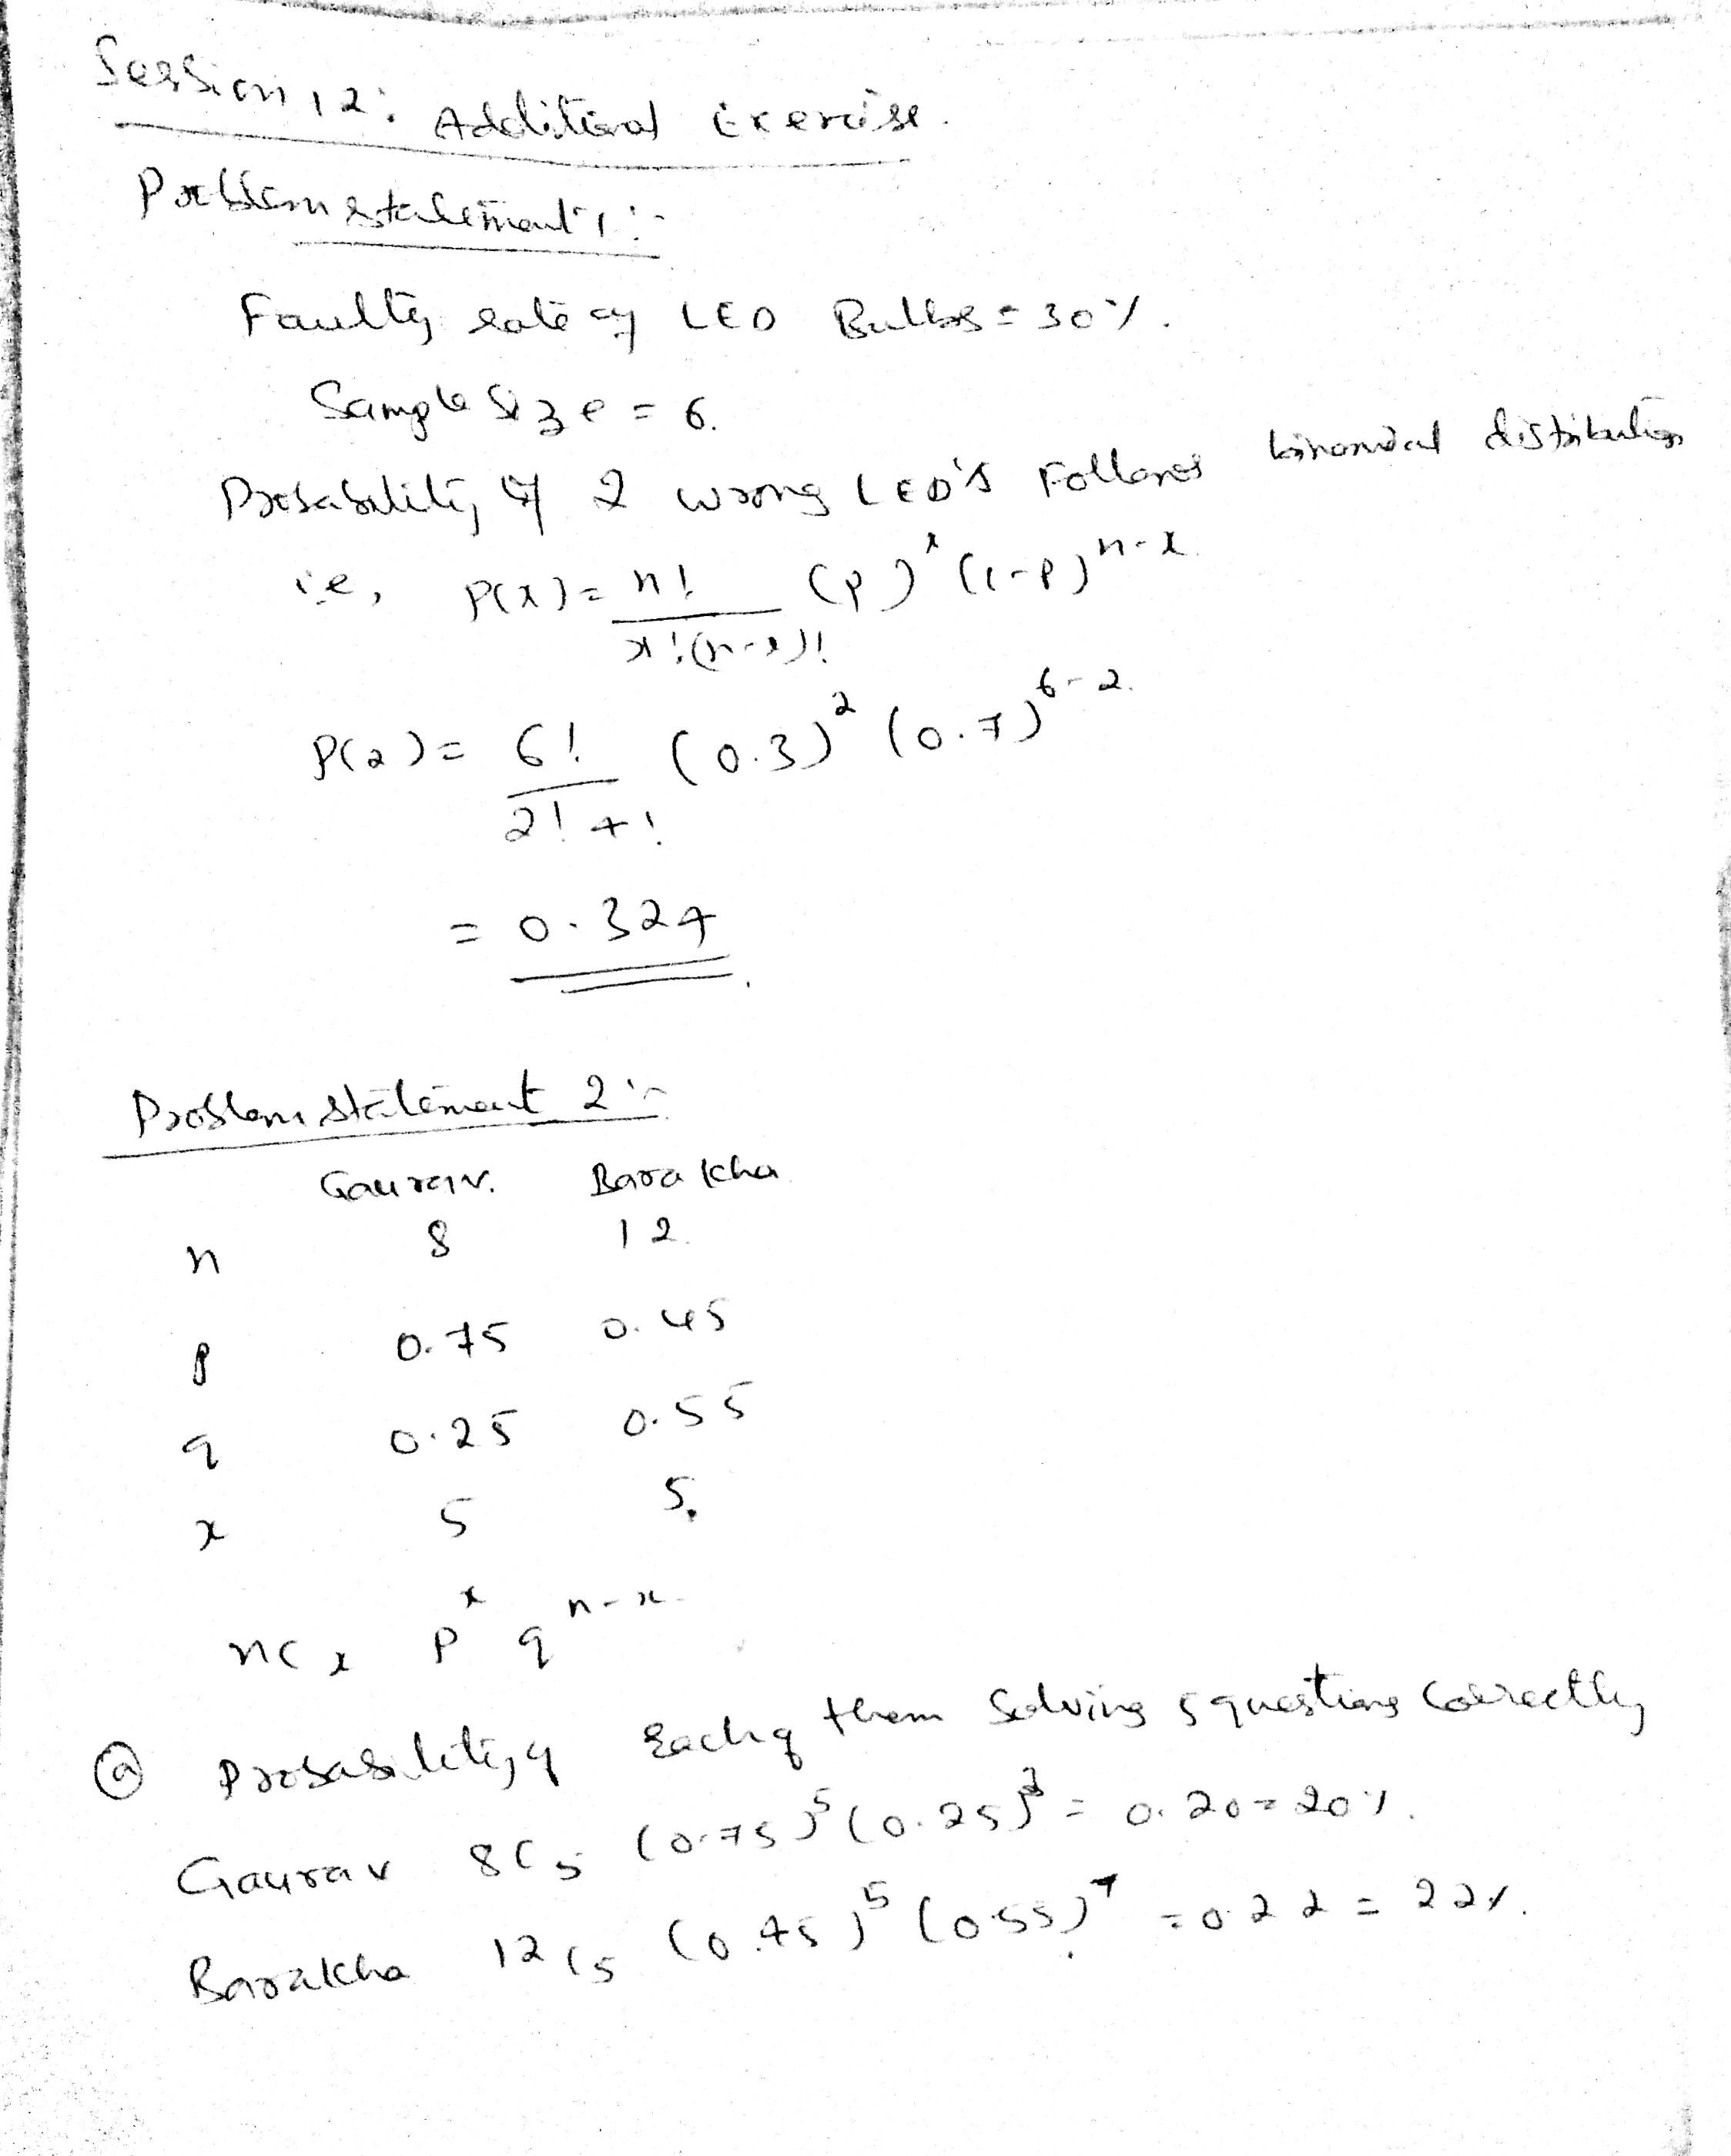 Session 12: Additional Exercise.
Problem statement 1:-
Faulty rate of LED Bulbs = 30%.
Sample Size = 6.
Probability of 2 wrong LED's Follows binomial distribution
i.e, P(x) = n! / x!(n-x)! (p)^x (1-p)^n-x.
P(2) = 6! / 2! 4! (0.3)^2 (0.7)^6-2.
= 0.324
Problem statement 2:-
Gaurav. Barakha
n 8 12.
p 0.75 0.45
q 0.25 0.55
x 5 5.
nCx p^x q^n-x.
(a) Probability of Each of them Solving 5 questions Correctly
Gaurav 8C5 (0.75)^5 (0.25)^3 = 0.20 = 20%.
Barakha 12C5 (0.45)^5 (0.55)^7 = 0.22 = 22%.